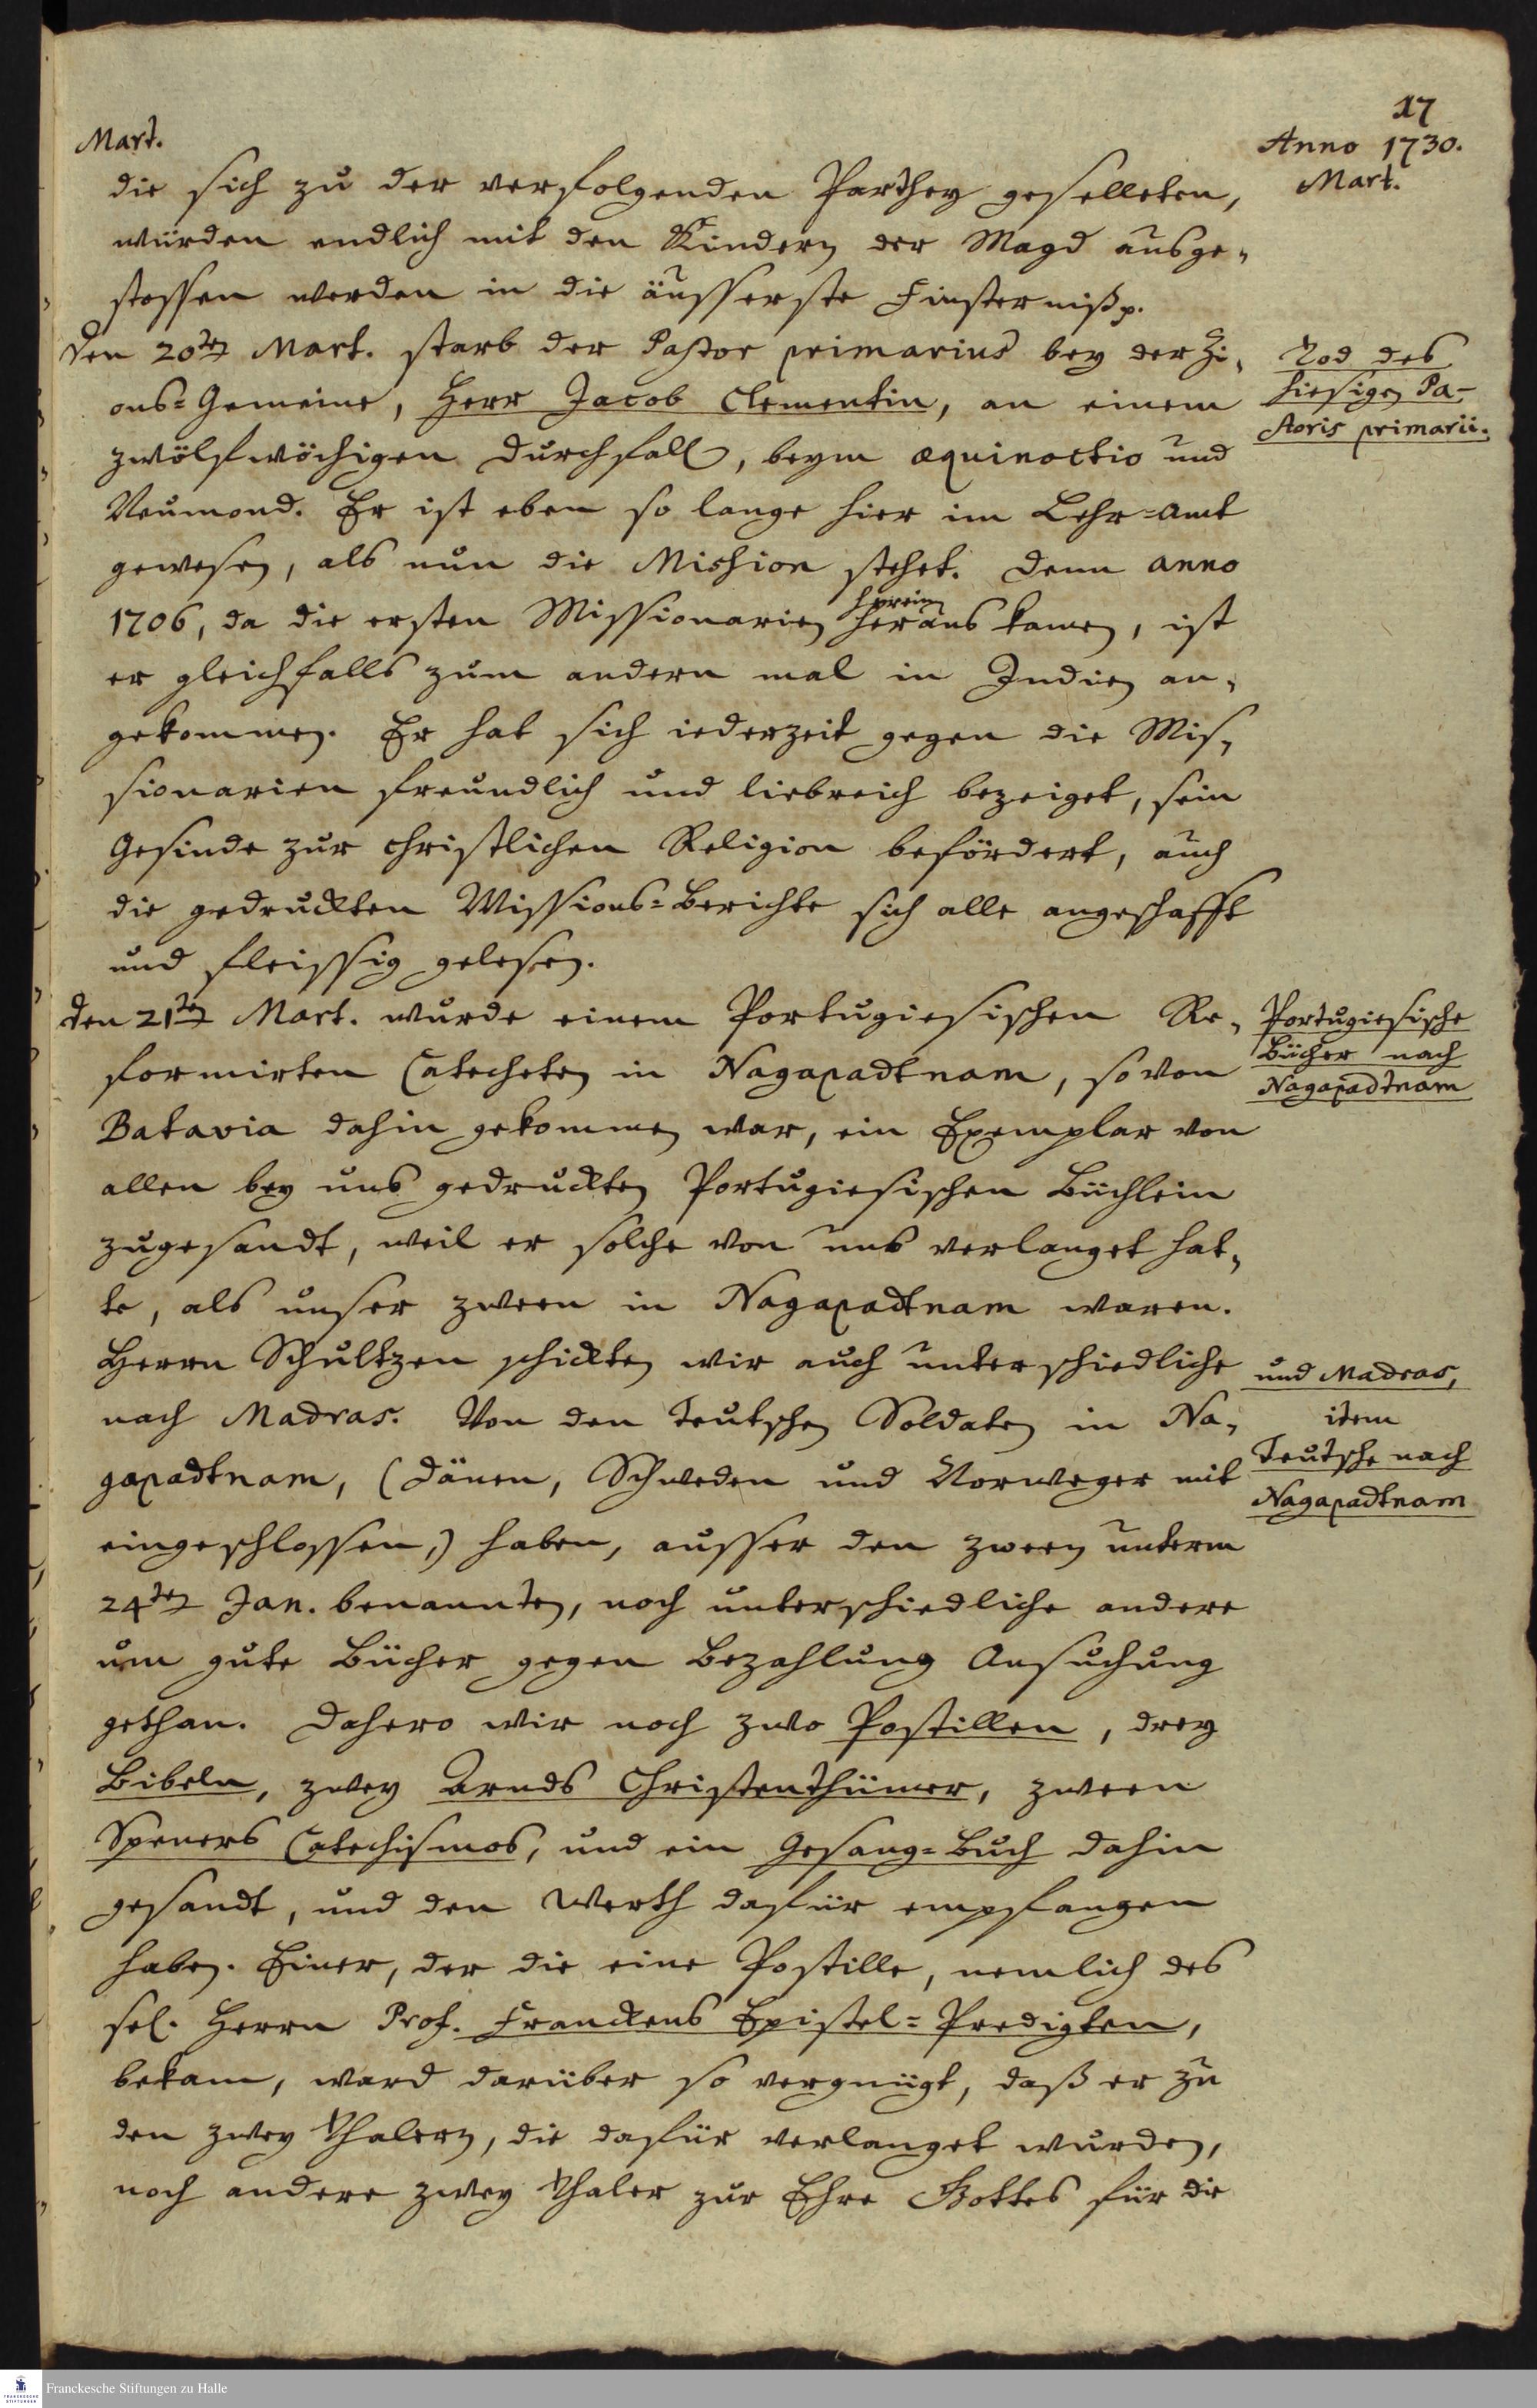 17
Mart.
Anno 1730.
Mart.
die sich zu der verfolgenden Parthey geselleten,
würden endlich mit den Kindern der Magd ausge-
stossen werden in die äusserste Finsterniß p.
Den 20ten Mart. starb der Pastor primarius bey der Zi-
ons-Gemeine, Herr Jacob Clementin, an einem
zwölfwöchigen Durchfall, beym æquinoctio und
Neumond. Er ist eben so lange hier im Lehr-Amt
gewesen, als nun die Mission stehet. Denn anno
1706, da die ersten Missionarien heraus kamen, ist
er gleichfalls zum andern mal in Indien an-
gekommen. Er hat sich iederzeit gegen die Mis-
sionarien freundlich und liebreich bezeiget, sein
Gesinde zur christlichen Religion befördert, auch
die gedruckten Missions-Berichte sich alle angeschafft
und fleissig gelesen.
Tod des
hiesigen Pa-
storis primarii.
Den 21ten Mart. wurde einem Portugiesischen Re-
formirten Catecheten in Nagapadtnam, so von
Batavia dahin gekommen war, ein Exemplar von
allen bey uns gedruckten Portugiesischen Büchlein
zugesandt, weil er solche von uns verlanget hat-
te, als unser zween in Nagapadtnam waren.
Herrn Schultzen schickten wir auch unterschiedliche
nach Madras. Von den Teutschen Soldaten in Na-
gapadtnam, (Dänen, Schweden und Norweger mit
eingeschlossen,) haben, ausser den zween unterm
24ten Jan. benannten, noch unterschiedliche andere
um gute Bücher gegen Bezahlung Ansuchung
gethan. Dahero wir noch zwo Postillen, drey
Bibeln, zwey Arnds Christenthümer, zween
Speners Catechismos, und ein Gesang-Buch dahin
gesandt, und den Werth dafür empfangen
haben. Einer, der die eine Postille, nemlich des
sel. Herrn Prof. Franckens Epistel-Predigten,
bekam, ward darüber so vergnügt, daß er zu
den zwey Thalern, die dafür verlanget wurden,
noch andere zwey Thaler zur Ehre Gottes für die
Portugiesische
Bücher nach
Nagapadtnam
und Madras,
item
Teutsche nach
Nagapadtnam
FRANCKESCHE
STIFTUNGEN
Franckesche Stiftungen zu Halle